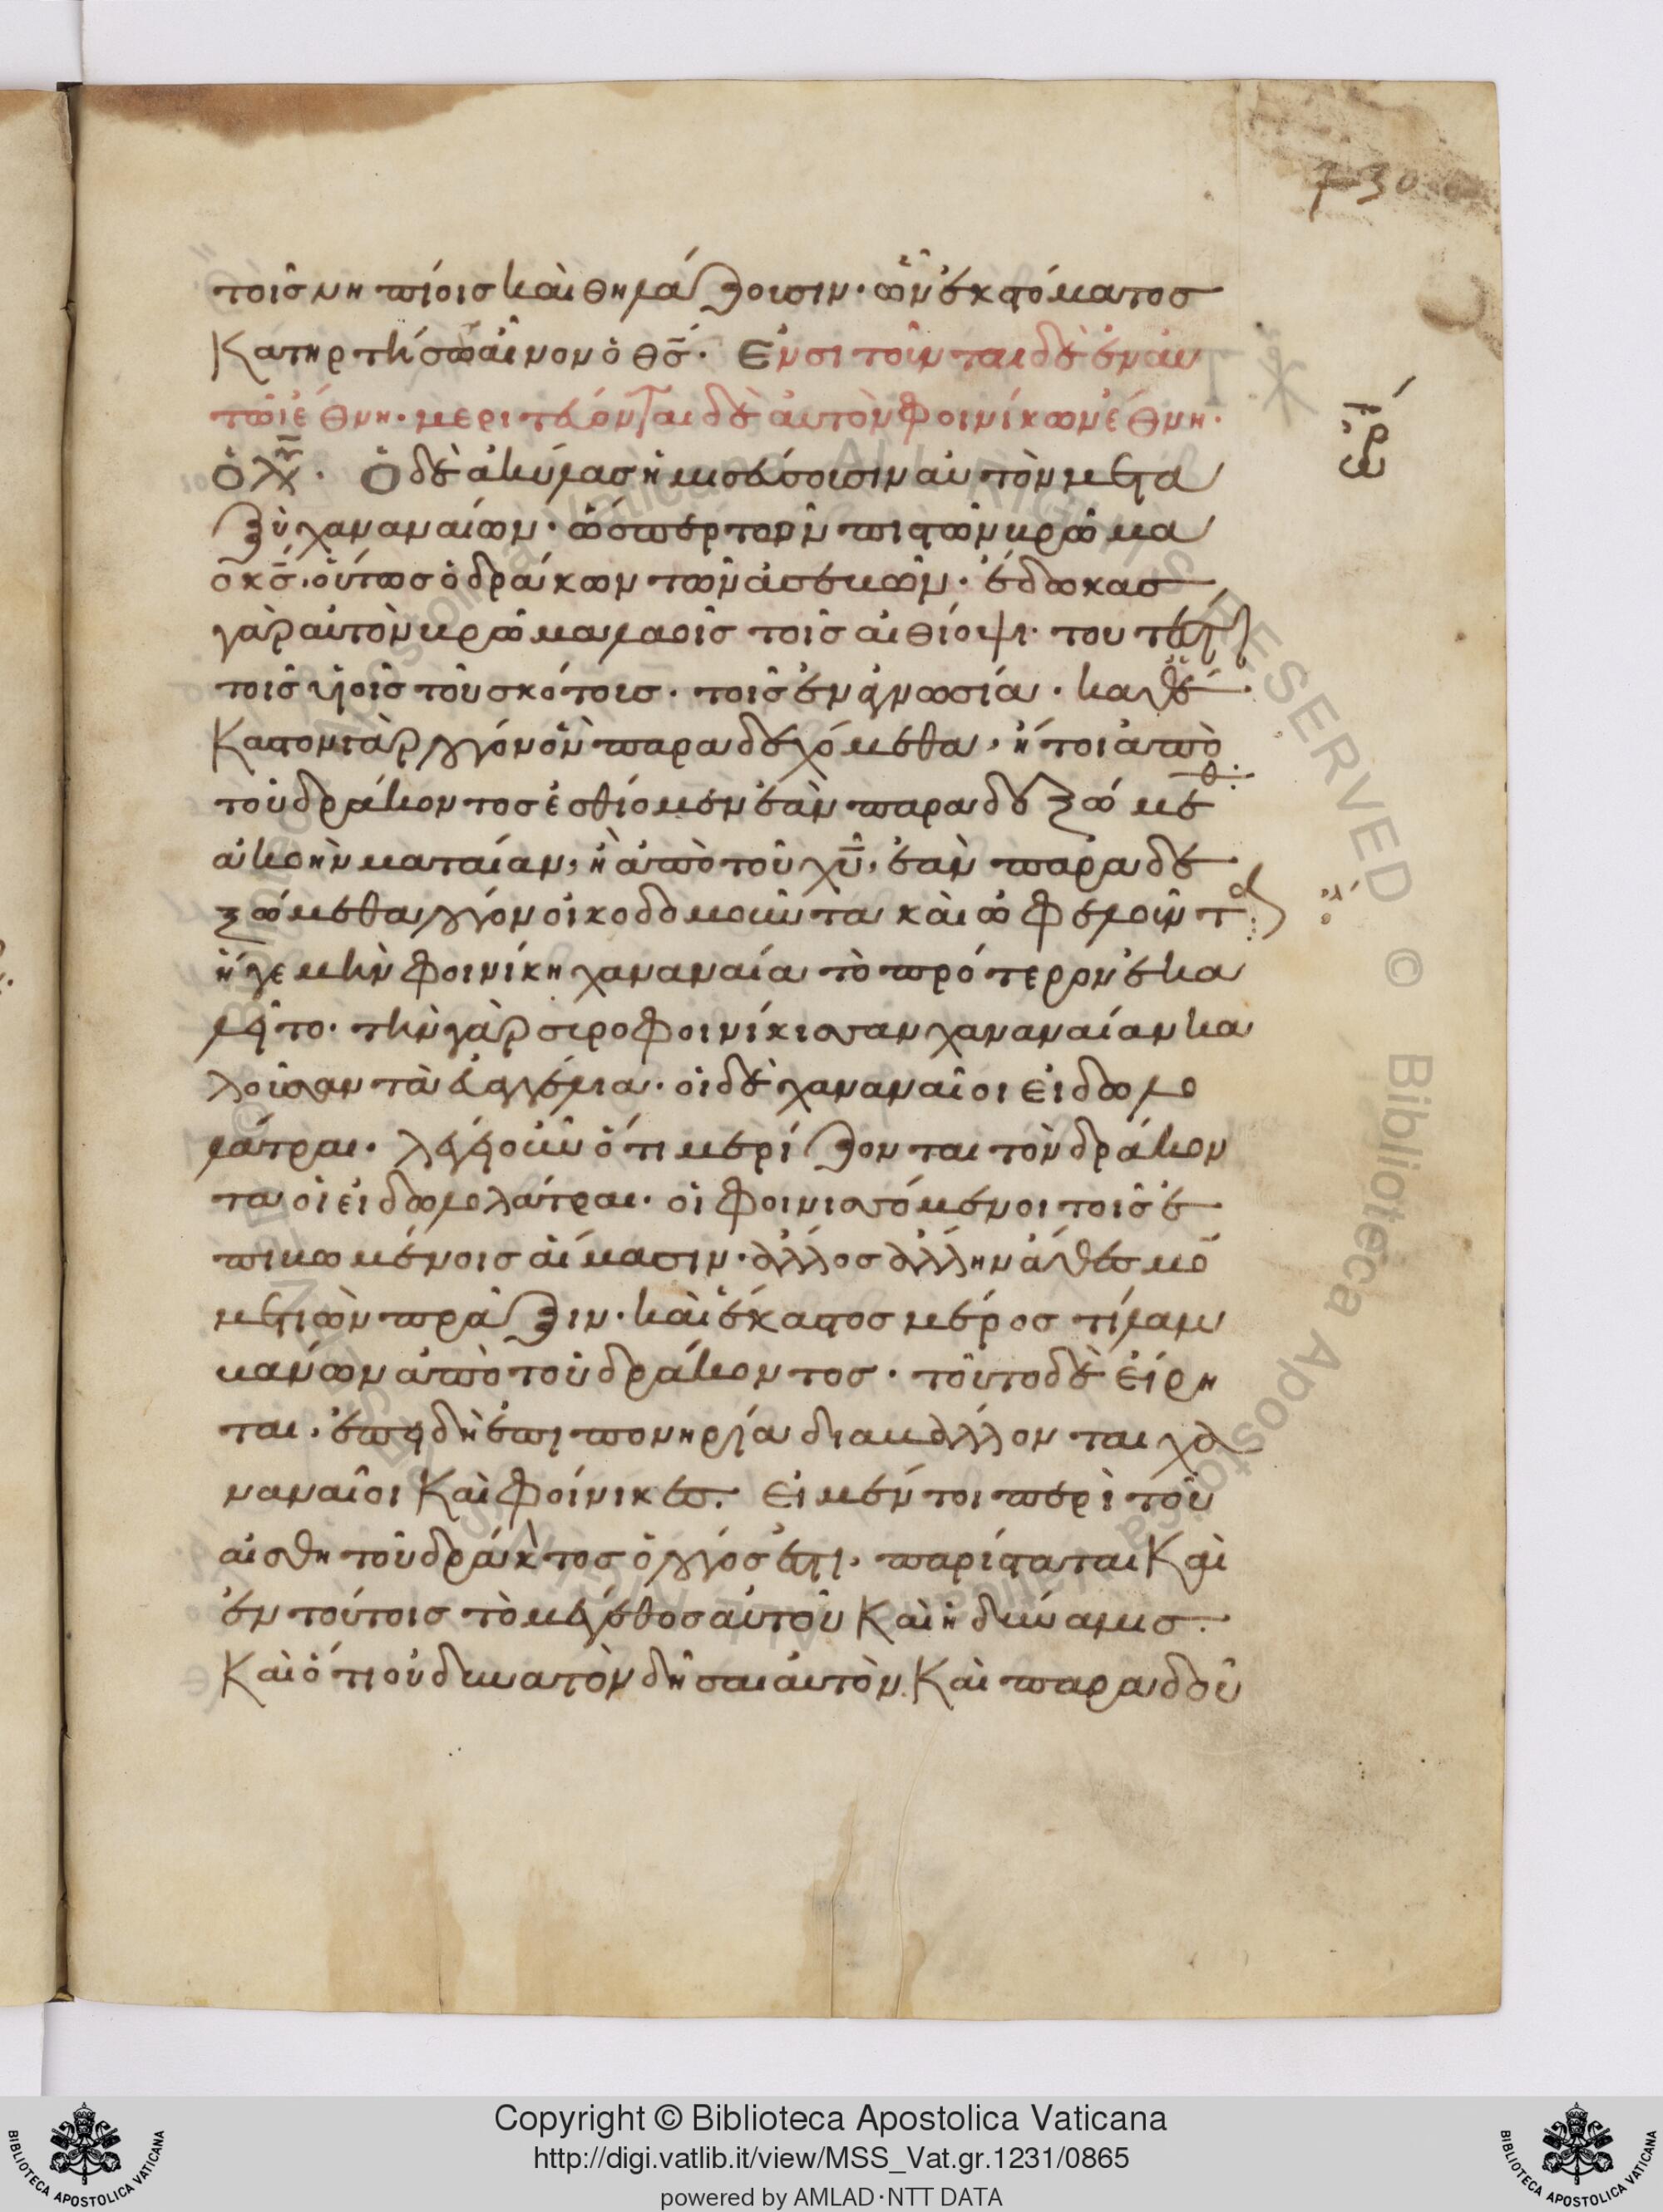 730
τοῖς νηπίοις καὶ θηλάζουσιν· ὧν ἐκ στόματος
κατηρτίσω αἶνον ὁ θς̅· Ενσιτοῦνται δὲ ἐν αὐ
τῶ ἔθνη· μεριτεύονται δὲ αὐτὸν φοινίκων ἔθνη·
Ὁ δὲ ἀκύλας ἡμισεύσουσιν αὐτὸν μετα
ξὺ χαναναίων· ὥσπερ τῶν πιστῶν βρῶμα
ὁ κς̅· οὕτως ὁ δράκων τῶν ἀσεβῶν· ἔδωκας
γὰρ αὐτὸν βρῶμα λαοῖς τοῖς αἰθίοψι· τουτέστι
τοῖς υἱοῖς τοῦ σκότους· τοῖς ἐν ἀγνωσία· καθ' ἕ
καστον γὰρ λόγον ὃν παραδεχόμεθα, ἤτοι ἀπὸ
τοῦ δράκοντος ἐσθίομεν ἐὰν παραδεξώμεθα
ἀκοὴν ματαίαν, ἢ ἀπὸ τοῦ χυ̅, ἐὰν παραδε
ξώμεθα λόγον οἰκοδομοῦντα καὶ ὠφελοῦντα
ἥ γε μὴν φοινίκη χαναναία τὸ πρότερον ἐκα
λεῖτο· τὴν γὰρ συροφοινίκισσαν χαναναίαν κα
λοῦσαν τὰ εὐαγγέλια· οἱ δὲ χαναναῖοι εἰδωλο
λάτραι· λέγει οὖν ὅτι μερίζονται τὸν δράκον
τα οἱ εἰδωλολάτραι· οἱ φοινισσόμενοι τοῖς ἐ
πιβωμίοις αἵμασιν· ἄλλος ἄλλην ἀθέσμο
μετιὼν πρᾶξιν· καὶ ἕκαστος μέρος τι λαμ
βάνων ἀπὸ τοῦ δράκοντος· τοῦτο δὲ εἴρη
ται· ἐπειδὴ ἐπὶ πονηρία διαβάλλονται χα
ναναῖοι καὶ φοίνικες. Εἰ μέν τοι περὶ τοῦ
αἰσθητοῦ δράκοντος ὁ λόγος ἐστι· παρίσταται καὶ
ἐν τούτοις τὸ μέγεθος αὐτοῦ καὶ ἡ δύναμις·
καὶ ὅτι οὐ δυνατὸν δῆσαι αὐτὸν καὶ παραδοῦ
Copyright © Biblioteca Apostolica Vaticana
http://digi.vatlib.it/view/MSS_Vat.gr.1231/0865
powered by AMLAD·NTT DATA
BIBLIOTECA APOSTOLICA VATICANA
BIBLIOTECA APOSTOLICA VATICANA